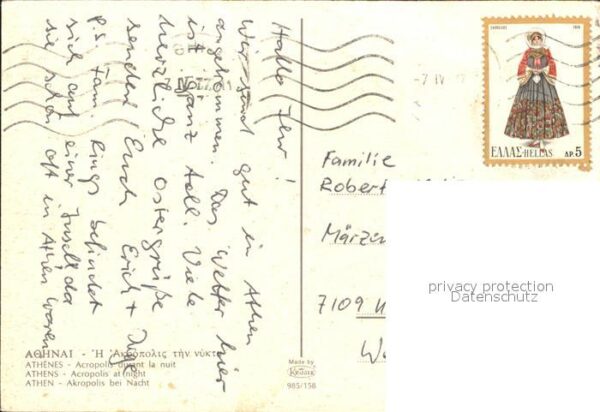 Hallo Ihr!
Wir sind gut in Athen
angekommen. Das Wetter hier
ist ganz toll. Viele
herzliche Ostergrüße
senden Euch Erich +
P.S. Fam. Rings befindet
sich auf einer Insel, da
sie schon oft in Athen waren
ΣΑΡΑΚΑΤΣ 1974
ΕΛΛΑΣ-HELLAS ΔΡ. 5
-7 IV
Familie
Robert
März
7109
W
privacy protection
Datenschutz
ΑΘΗΝΑΙ - Ἡ Ἀκρόπολις τὴν νύκτα
ATHÈNES - Acropolis durant la nuit
ATHENS - Acropolis at night
ATHEN - Akropolis bei Nacht
Made by
985/158